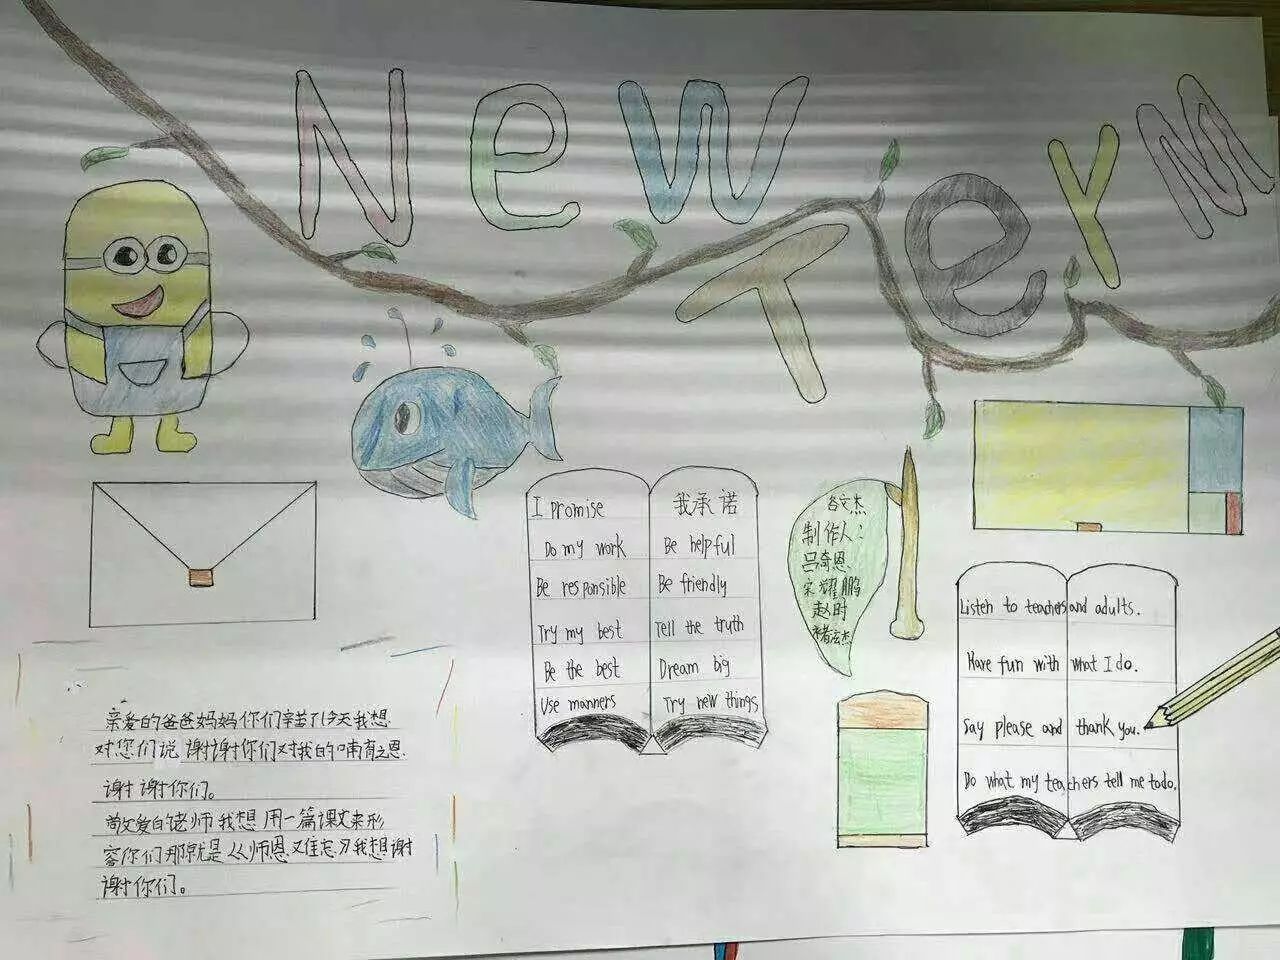 New
Term
I promise
Do my work
Be responsible
Try my best
Be the best
Use manners
我承诺
Be helpful
Be friendly
Tell the truth
Dream big
Try new things
制作人:
吕奇恩
宋耀鹏
赵时
Listen to teachers and adults.
Have fun with what I do.
Say please and thank you.
Do what my teachers tell me todo.
亲爱的爸爸妈妈你们辛苦了今天我想
对您们说谢谢你们对我的哺育之恩
谢谢你们。
敬爱的老师我想用一篇课文来形
容你们那就是《师恩难忘》我想谢
谢你们。